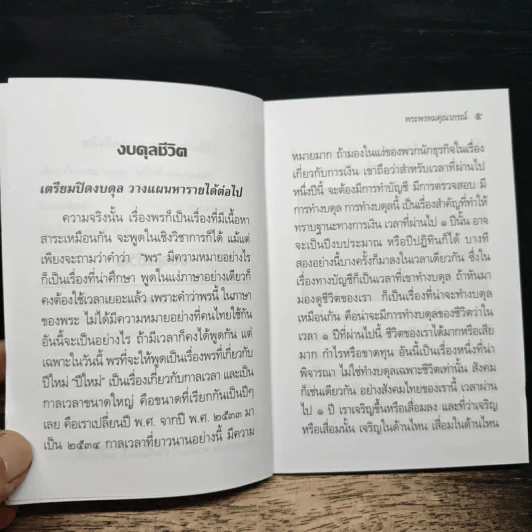 งบดุลชีวิต
เตรียมปิดงบดุล วางแผนหารายได้ต่อไป
ความจริงนั้น เรื่องพรก็เป็นเรื่องที่มีเนื้อหา
สาระเหมือนกัน จะพูดในเชิงวิชาการก็ได้ แม้แต่
เพียงจะถามว่าคำว่า “พร” มีความหมายอย่างไร
ก็เป็นเรื่องที่น่าศึกษา พูดในแง่ภาษาอย่างเดียวก็
คงต้องใช้เวลาเยอะแล้ว เพราะคำว่าพรนี้ ในภาษา
ของพระ ไม่ได้มีความหมายอย่างที่คนไทยใช้กัน
อันนี้จะเป็นอย่างไร ถ้ามีเวลาก็คงได้พูดกัน แต่
เฉพาะในวันนี้ พรที่จะให้พูดเป็นเรื่องพรที่เกี่ยวกับ
ปีใหม่ “ปีใหม่” เป็นเรื่องเกี่ยวกับกาลเวลา และเป็น
กาลเวลาขนาดใหญ่ คือขนาดที่เรียกกันเป็นปีๆ
เลย คือเราเปลี่ยนปี พ.ศ. จากปี พ.ศ. ๒๕๓๓ มา
เป็น ๒๕๓๔ กาลเวลาที่ยาวนานอย่างนี้ มีความ
พระพรหมคุณาภรณ์ ๕
หมายมาก ถ้ามองในแง่ของพวกนักธุรกิจในเรื่อง
เกี่ยวกับการเงิน เขาถือว่าสำหรับเวลาที่ผ่านไป
หนึ่งปีนี้ จะต้องมีการทำบัญชี มีการตรวจสอบ มี
การทำงบดุล การทำงบดุลนี้ เป็นเรื่องสำคัญที่ทำให้
ทราบฐานะทางการเงิน เวลาที่ผ่านไป ๑ ปีนั้น อาจ
จะเป็นปีงบประมาณ หรือปีปฏิทินก็ได้ บางที
สองอย่างนี้บางครั้งก็มาลงในเวลาเดียวกัน ซึ่งใน
เรื่องทางบัญชีก็เป็นเวลาที่เขาทำงบดุล ถ้าหันมา
มองดูชีวิตของเรา ก็เป็นเรื่องที่น่าจะทำงบดุล
เหมือนกัน คือน่าจะมีการทำงบดุลของชีวิตว่าใน
เวลา ๑ ปีที่ผ่านไปนี้ ชีวิตของเราได้มากหรือเสีย
มาก กำไรหรือขาดทุน อันนี้เป็นเรื่องหนึ่งที่น่า
พิจารณา ไม่ใช่ทำงบดุลเฉพาะชีวิตเท่านั้น สังคม
ก็เช่นเดียวกัน อย่างสังคมไทยของเรานี้ เวลาผ่าน
ไป ๑ ปี เราเจริญขึ้นหรือเสื่อมลง และที่ว่าเจริญ
หรือเสื่อมนั้น เจริญในด้านไหน เสื่อมในด้านไหน